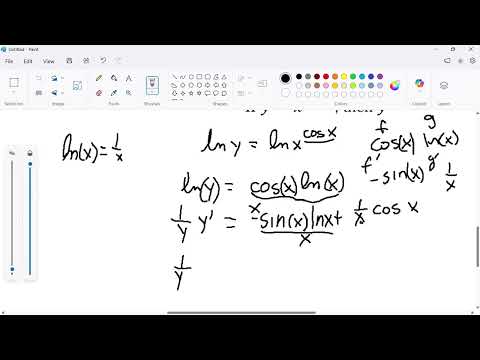 Untitled - Paint
File Edit View
Selection Image Tools Brushes Shapes Size Colors Layers
ln(x)=1/x
ln y = ln x^cos x
f g
cos(x) ln(x)
f' g'
-sin(x) 1/x
ln(y) = cos(x) ln(x)
1/y y' = x -sin(x) lnx + 1/x cos x
x
1/y